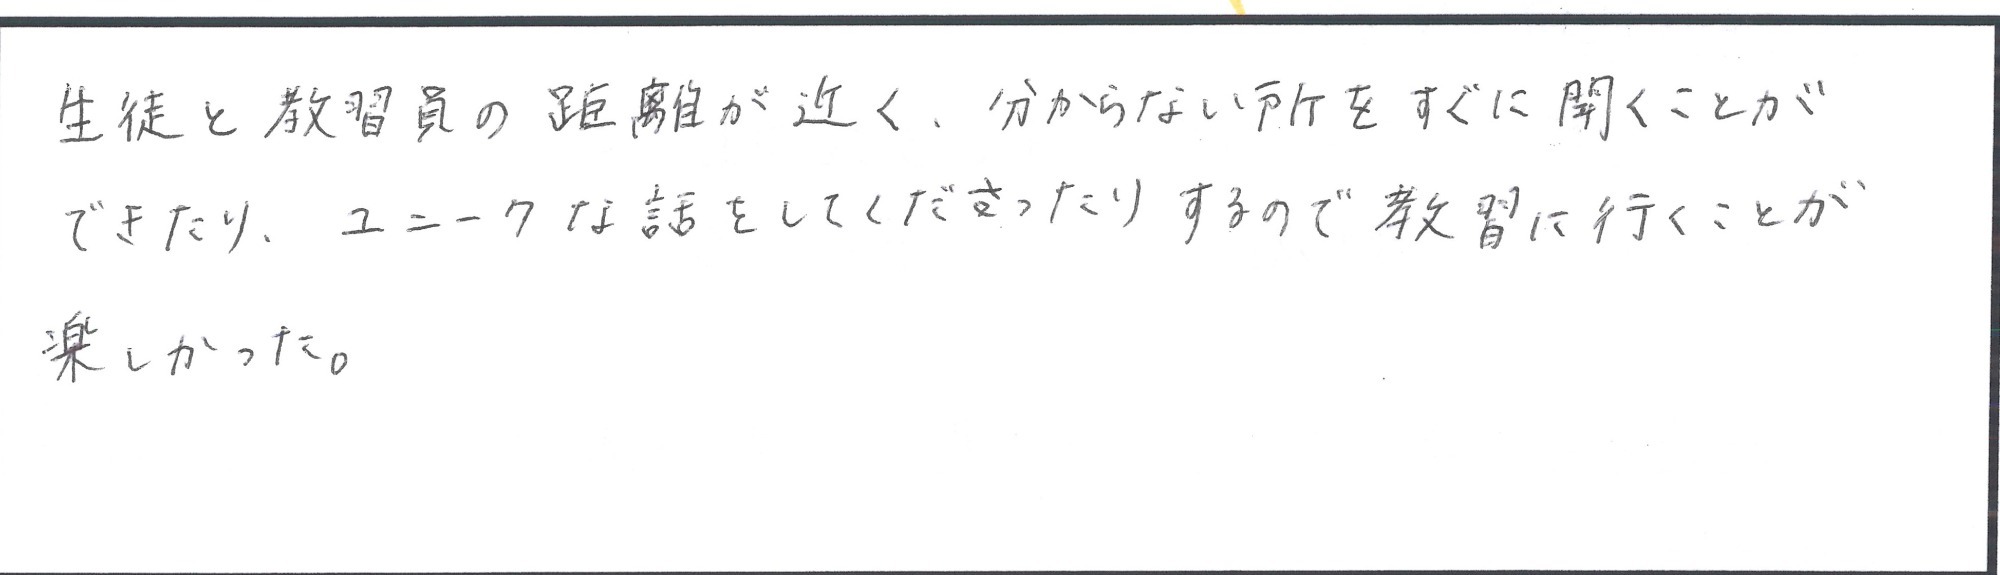 生徒と教習員の距離が近く、分からない所をすぐに聞くことが
できたり、ユニークな話をしてくださったりするので教習に行くことが
楽しかった。